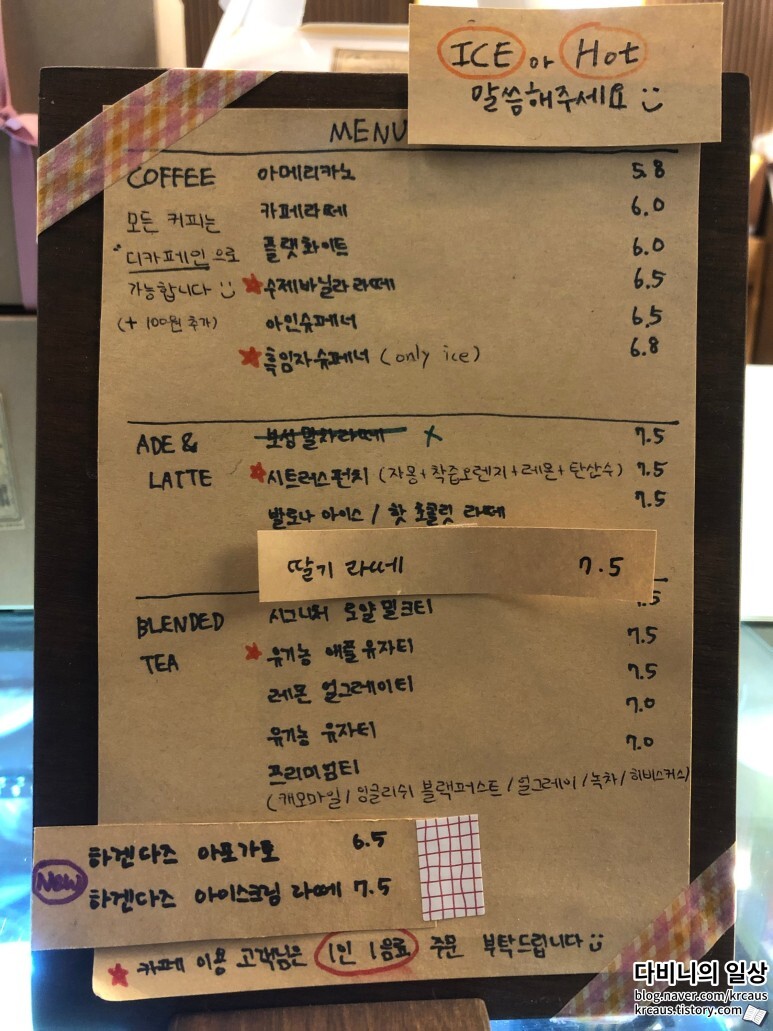 ICE or Hot
말씀해주세요
MENU
COFFEE 아메리카노 5.8
모든 커피는 카페라떼 6.0
디카페인으로 플랫화이트 6.0
가능합니다 ★수제바닐라 라떼 6.5
(+ 100원 추가) 아인슈페너 6.5
★흑임자슈페너 (only ice) 6.8
ADE & 보성말차라떼 x 7.5
LATTE ★시트러스펀치 (자몽+착즙오렌지+레몬+탄산수) 7.5
발로나 아이스 / 핫 초콜릿 라떼 7.5
딸기 라떼 7.5
BLENDED 시그니처 로얄 밀크티 7.5
TEA ★유기농 애플유자티 7.5
레몬 얼그레이티 7.5
유기농 유자티 7.0
프리미엄티 7.0
(캐모마일 / 잉글리쉬 블랙퍼스트 / 얼그레이 / 녹차 / 히비스커스)
하겐다즈 아포가토 6.5
New 하겐다즈 아이스크림 라떼 7.5
★ 카페 이용 고객님은 1인 1음료 주문 부탁드립니다
다비니의 일상
blog.naver.com/krcaus
krcaus.tistory.com